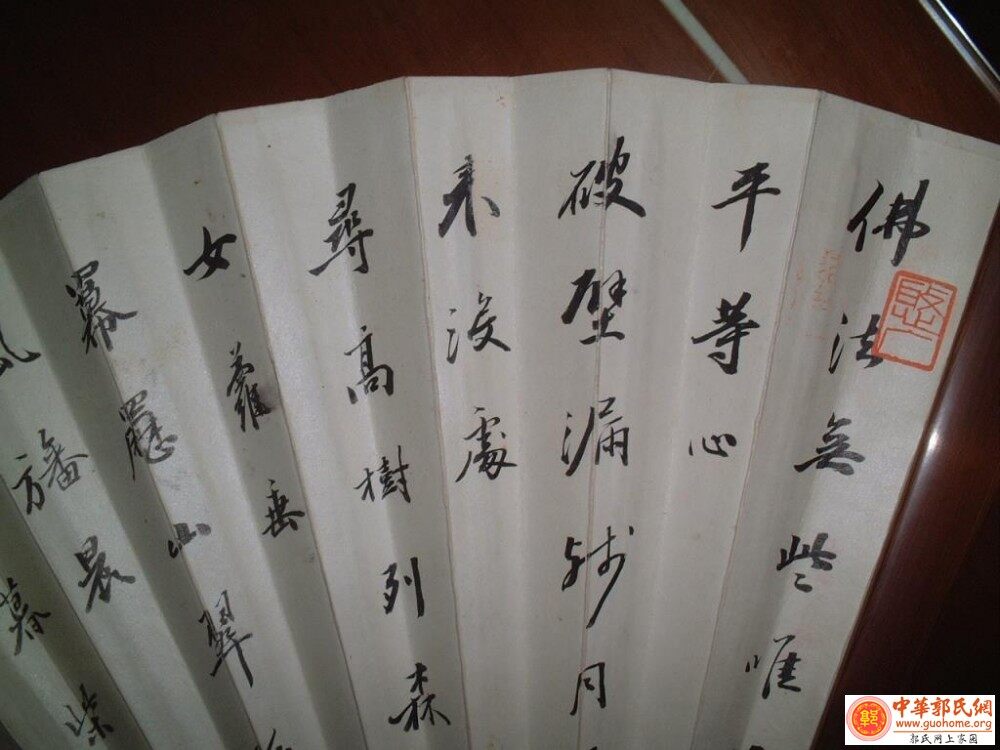 佛法無些唯
平等心
破壁漏殘月
處
尋高樹列森
女蘿垂
羃䍥山翠
風旛晨
暮柴
中華郭氏網
www.guohome.org
郭氏网上家園